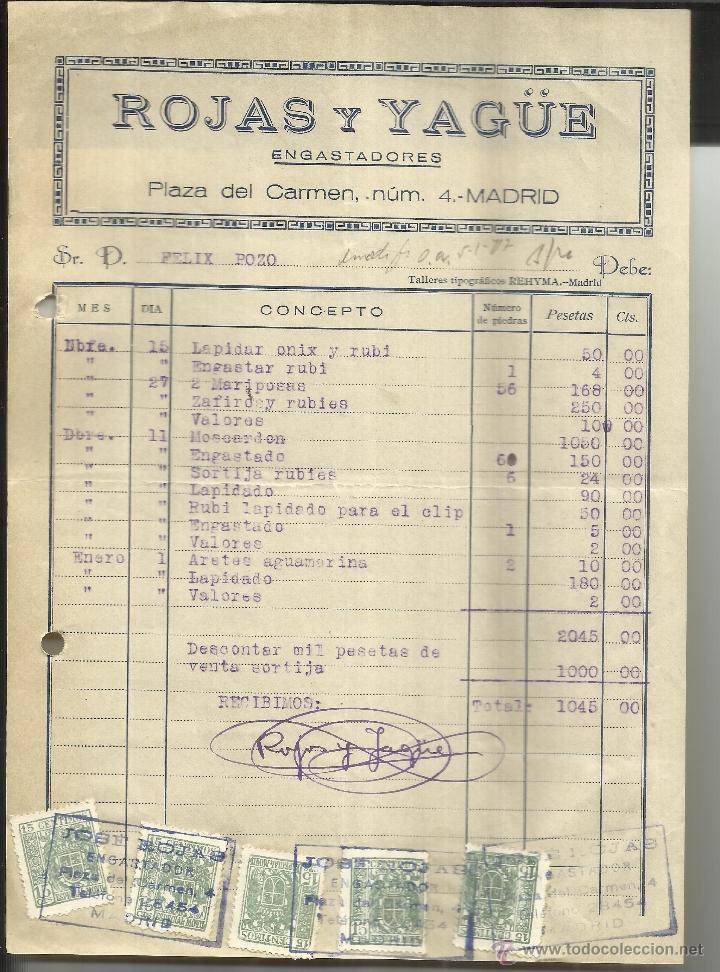 ROJAS Y YAGÜE
ENGASTADORES
Plaza del Carmen, núm. 4.-MADRID
Sr. D. FELIX POZO Debe:
Talleres tipográficos REHYMA.-Madrid
MES DIA CONCEPTO Número de piedras Pesetas Cts.
Nbre. 15 Lapidar onix y rubi 50 00
" " Engastar rubi 1 4 00
" 27 2 Mariposas 56 168 00
" " Zafiros y rubies 250 00
" " Valores 10 00
Dbre. 11 Moscardon 1050 00
" " Engastado 60 150 00
" " Sortija rubies 6 24 00
" " Lapidado 90 00
" " Rubi lapidado para el clip 50 00
" " Engastado 1 5 00
" " Valores 2 00
Enero 1 Aretes aguamarina 2 10 00
" " Lapidado 180 00
" " Valores 2 00
2045 00
Descontar mil pesetas de
venta sortija 1000 00
RECIBIMOS: Total: 1045 00
Rojas y Yagüe
JOSE ROJAS
ENGASTADOR
Plaza del Carmen, 4
Teléfono 28454
MADRID
15 CENTIMOS
JOSE ROJAS
ENGASTADOR
Plaza del Carmen, 4
MADRID
ROJAS
Carmen, 4
28454
MADRID
todocoleccion
www.todocoleccion.net